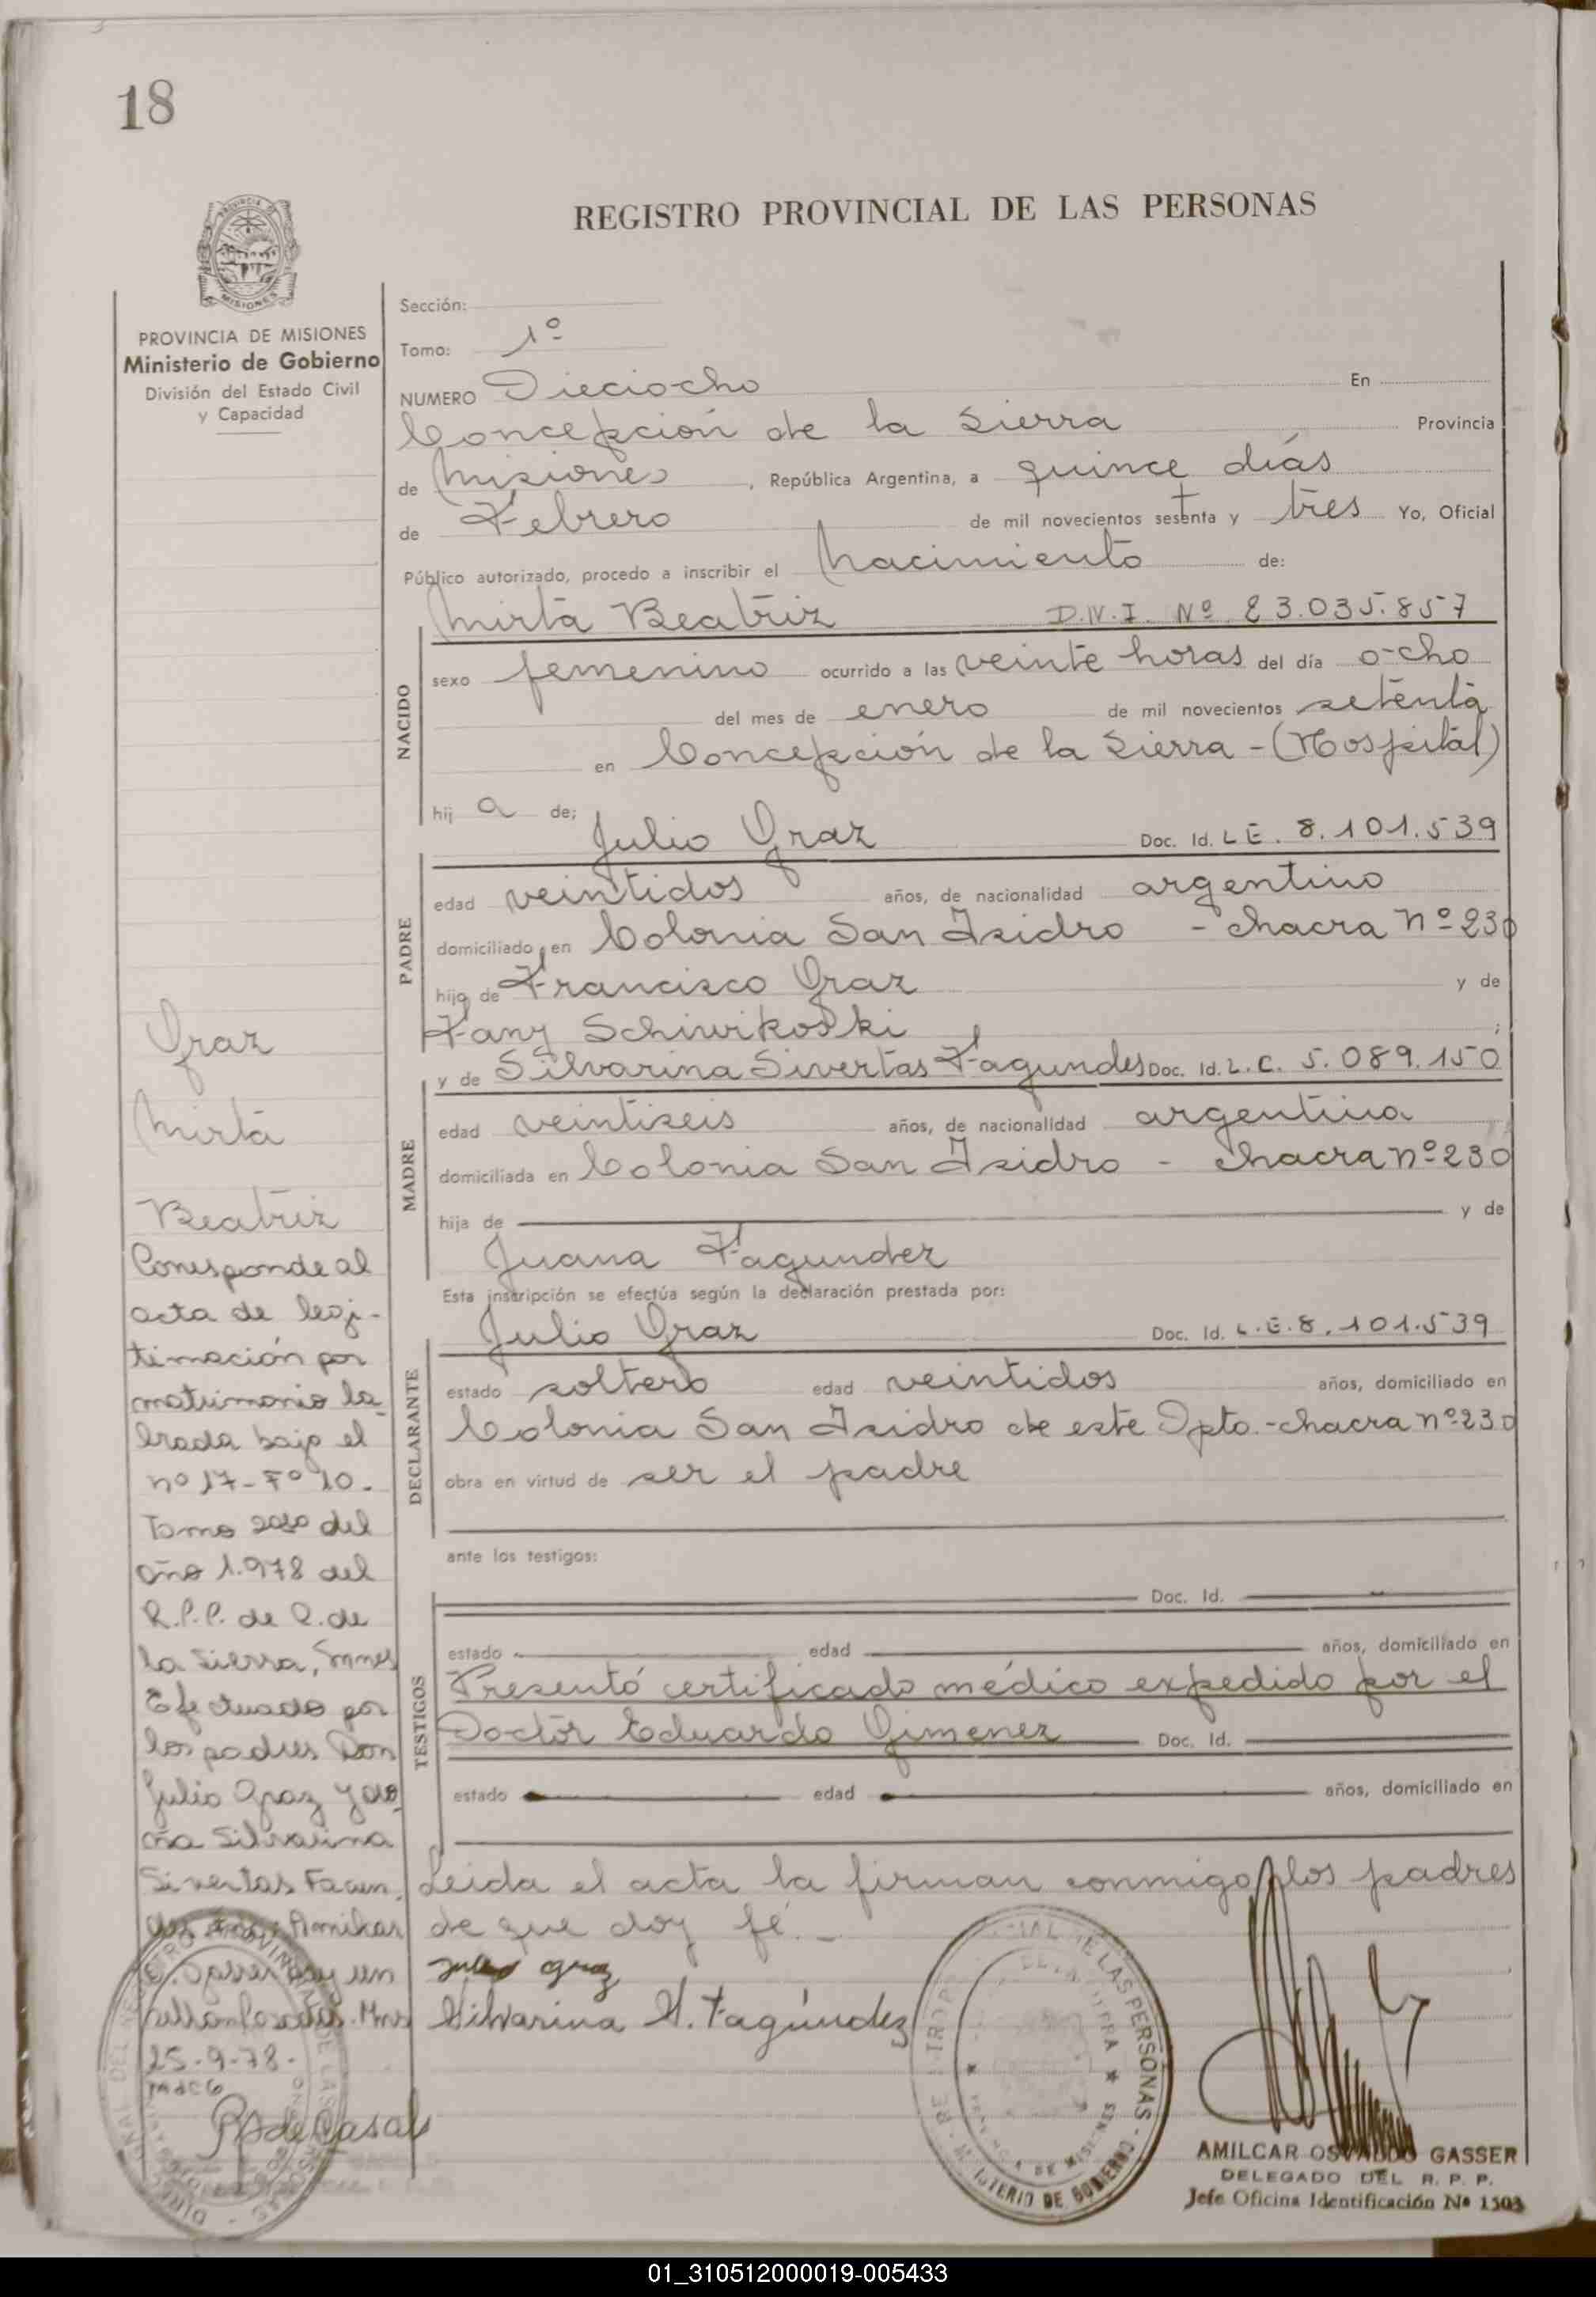 18
REGISTRO PROVINCIAL DE LAS PERSONAS
PROVINCIA DE
MISIONES
PROVINCIA DE MISIONES
Ministerio de Gobierno
División del Estado Civil
y Capacidad
Sección:
Tomo: 1º
NUMERO Dieciocho En
Concepción de la Sierra Provincia
de Misiones, República Argentina, a quince días
de Febrero de mil novecientos setenta y tres Yo, Oficial
Público autorizado, procedo a inscribir el Nacimiento de:
Mirta Beatriz D.N.I. Nº 23.035.857
NACIDO
sexo femenino ocurrido a las veinte horas del día ocho
del mes de enero de mil novecientos setenta
en Concepción de la Sierra - (Hospital)
hij a de;
Julio Graz Doc. Id. L E. 8.101.539
PADRE
edad veintidos años, de nacionalidad argentino
domiciliado en Colonia San Isidro - chacra nº 230
hijo de Francisco Graz y de
Fany Schiwikoski;
y de Silvarina Sivertas Fagundes Doc. Id. L.C. 5.089.150
MADRE
edad veintiseis años, de nacionalidad argentina
domiciliada en Colonia San Isidro - chacra nº 230
hija de y de
Juana Fagundez
Esta inscripción se efectúa según la declaración prestada por:
Julio Graz Doc. Id. L.E. 8.101.539
DECLARANTE
estado soltero edad veintidos años, domiciliado en
Colonia San Isidro de este Dpto. - chacra nº 230
obra en virtud de ser el padre
ante los testigos:
Doc. Id.
TESTIGOS
estado edad años, domiciliado en
Presentó certificado médico expedido por el
Doctor Eduardo Gimenez Doc. Id.
estado edad años, domiciliado en
Leida el acta la firman conmigo los padres
de que doy fé.-
Julio Graz
Silvarina S. Fagúndez
Graz
Mirta
Beatriz
Corresponde al
acta de legi-
timación por
matrimonio la-
brada bajo el
nº 17 - Fº 10.
Tomo 2do del
año 1.978 del
R.P.P. de C. de
la Sierra, Mnes
Efectuado por
los padres Don
Julio Graz y do-
ña Silvarina
Sivertas Fagun-
Amilcar
O. Gasser hay un
sello Posadas. Mnes
25-9-78-
MdeCG
de Casals
DE LAS PERSONAS
MINISTERIO DE GOBIERNO
AMILCAR OSVALDO GASSER
DELEGADO DEL R. P. P.
Jefe Oficina Identificación Nº 1503
01_310512000019-005433